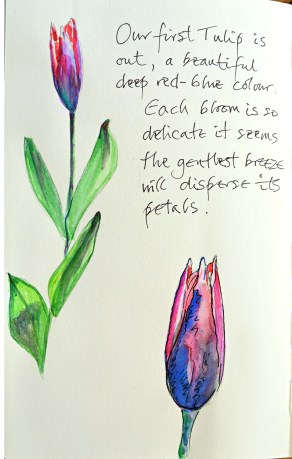 Our first Tulip is
out, a beautiful
deep red-blue colour.
Each bloom is so
delicate it seems
the gentlest breeze
will disperse its
petals.